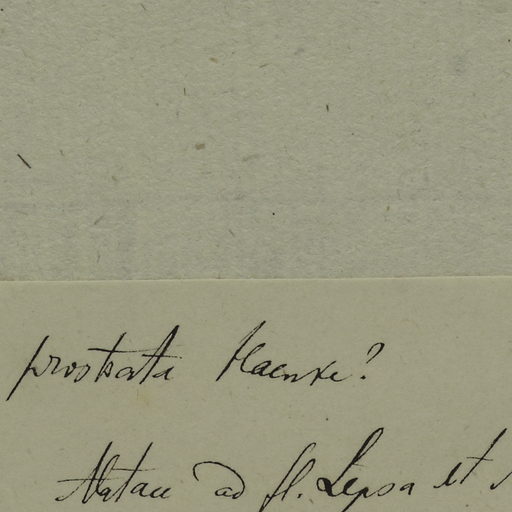 prostrata Haenke?
Alatau ad fl. Lepsa et